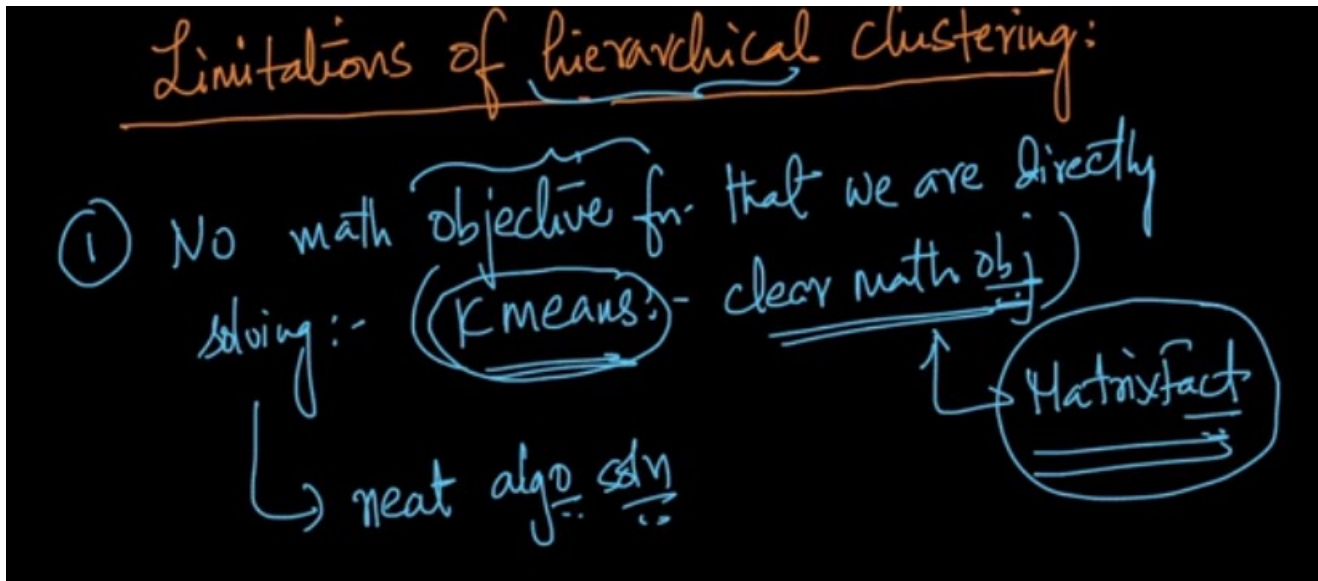 Limitations of hierarchical clustering:
① No math objective fn. that we are directly
solving:- (K means:- clear math obj)
MatrixFact
↳ neat algo soln